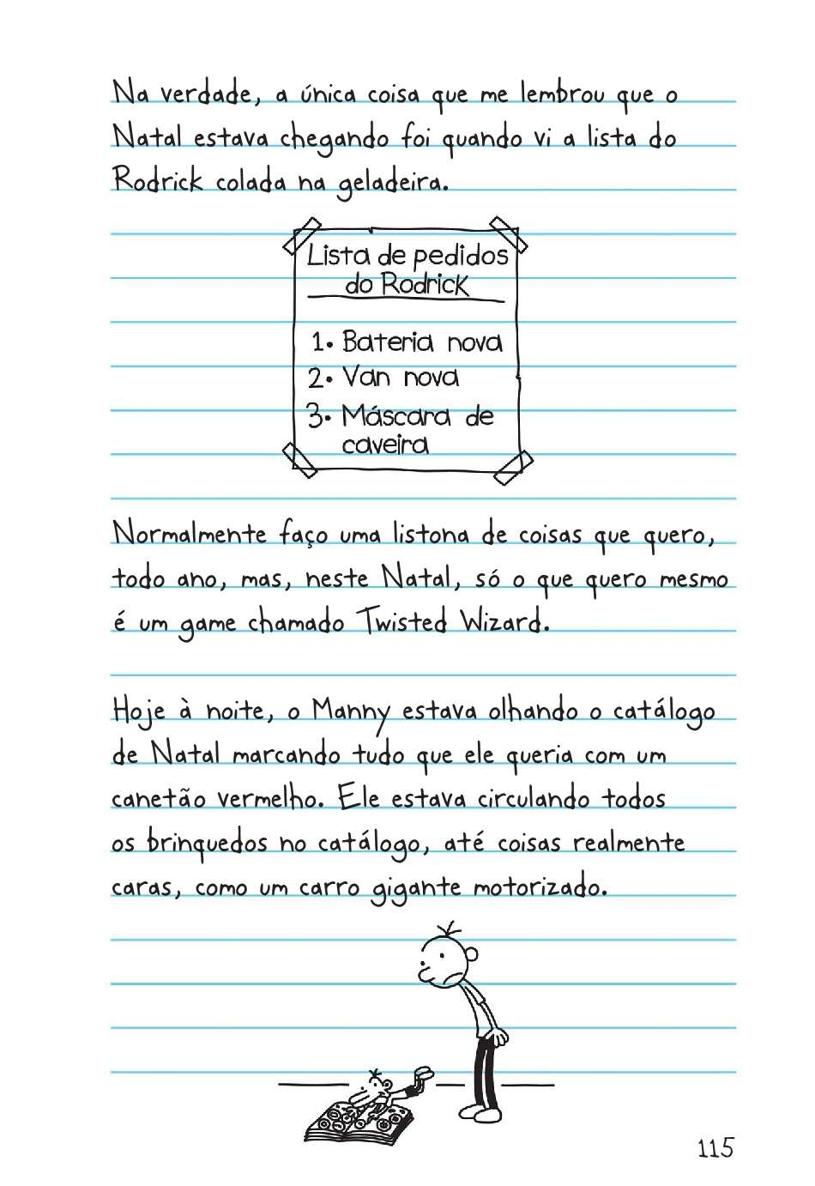 Na verdade, a única coisa que me lembrou que o
Natal estava chegando foi quando vi a lista do
Rodrick colada na geladeira.
Lista de pedidos
do Rodrick
1. Bateria nova
2. Van nova
3. Máscara de
caveira
Normalmente faço uma listona de coisas que quero,
todo ano, mas, neste Natal, só o que quero mesmo
é um game chamado Twisted Wizard.
Hoje à noite, o Manny estava olhando o catálogo
de Natal marcando tudo que ele queria com um
canetão vermelho. Ele estava circulando todos
os brinquedos no catálogo, até coisas realmente
caras, como um carro gigante motorizado.
115